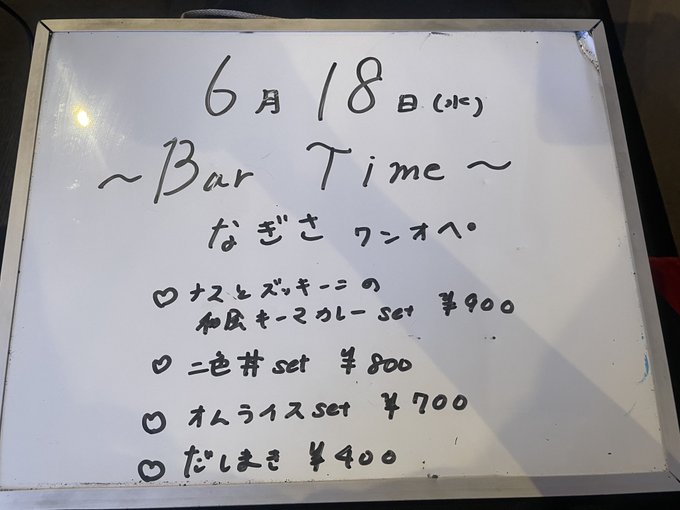 6月18日(水)
～Bar Time～
なぎさ ワンオペ。
♡ ナスとズッキーニの
和風キーマカレーset ¥900
♡ 二色丼set ¥800
♡ オムライスset ¥700
♡ だしまき ¥400